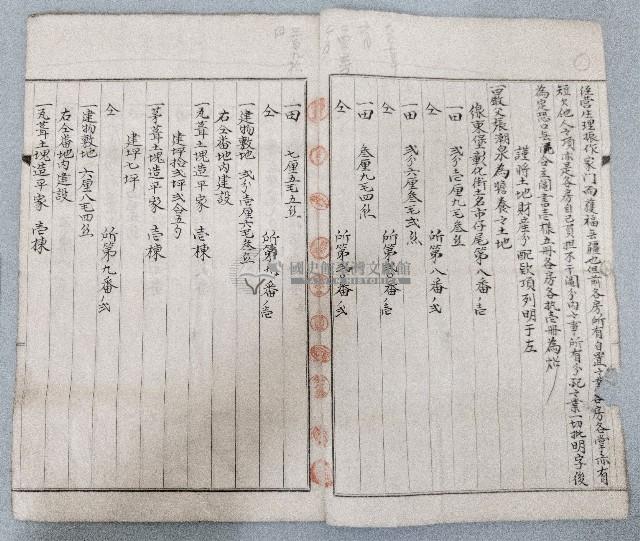 任營生理振作家門而獲福無疆也但前各房所有自置之業各房各掌亦有
短欠他人之項亦是各房自己負担不干鬮分內之事所有分記之業一切批明字後
為定恐口無憑合立鬮書壱樣五冊各房各执壱冊為炤
謹將土地財産分配欵項列明于左
一田 父張潮泉為贍養之土地
線東堡彰化街土名市仔尾第八番壱
一田 弍分壱厘九毛叁
仝 所第八番弍
一田 弍分六厘叁毛弍糸
仝
一田 叁厘九毛四糸
仝
一田 七厘五毛五糸
仝 所第 番壱
一建物敷地 弍分壱厘六毛叁糸
右仝番地內建設
一瓦葺土塊造平家 壱棟
建坪拾弍坪弍合五勺
一茅葺土塊造平家 壱棟
建坪七坪
仝 所第九番弍
一建物敷地 六厘八毛四糸
右仝番地內建設
一瓦葺土塊造平家 壱棟
國史館臺灣文獻館